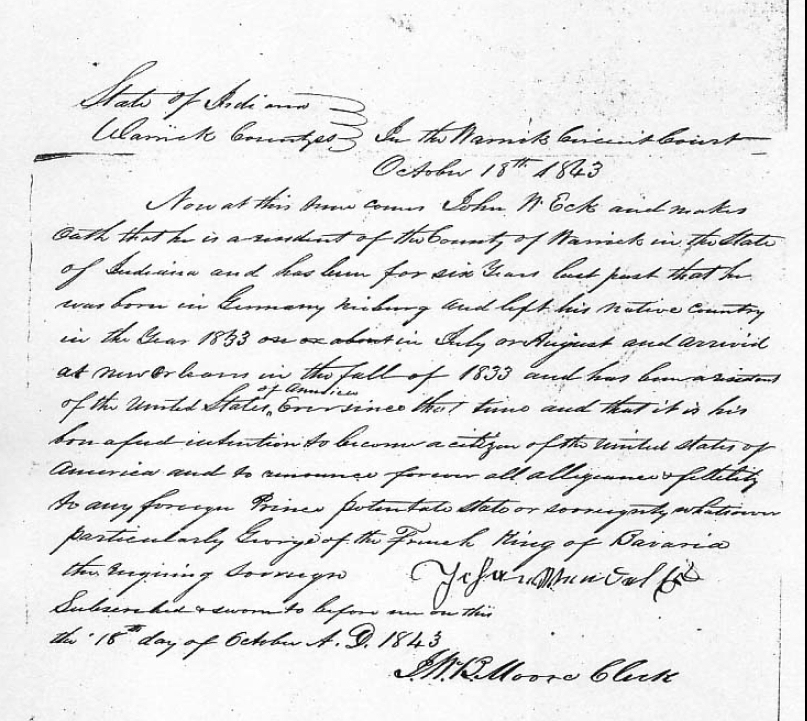 State of Indiana
Warrick County ss In the Warrick Circuit Court
October 18th 1843
Now at this time comes John W. Eck and makes
oath that he is a resident of the County of Warrick in the State
of Indiana and has been for six Years last past that he
was born in Germany and left his native country
in the Year 1833 on or about in July or August and arrived
at new orleans in the fall of 1833 and has been a resident
of America
of the United States, Ever since that time and that it is his
bona fied intention to become a citizen of the united states of
America and to renounce forever all allegiance & fidelity
to any foreign Prince potentate state or sovreignty whatsoever
particularly George of the French King of Bavaria
the reigning sovreign
Subscribed & sworn to before me on this
the 18th day of October A. D. 1843
J. W. B. Moore Clerk